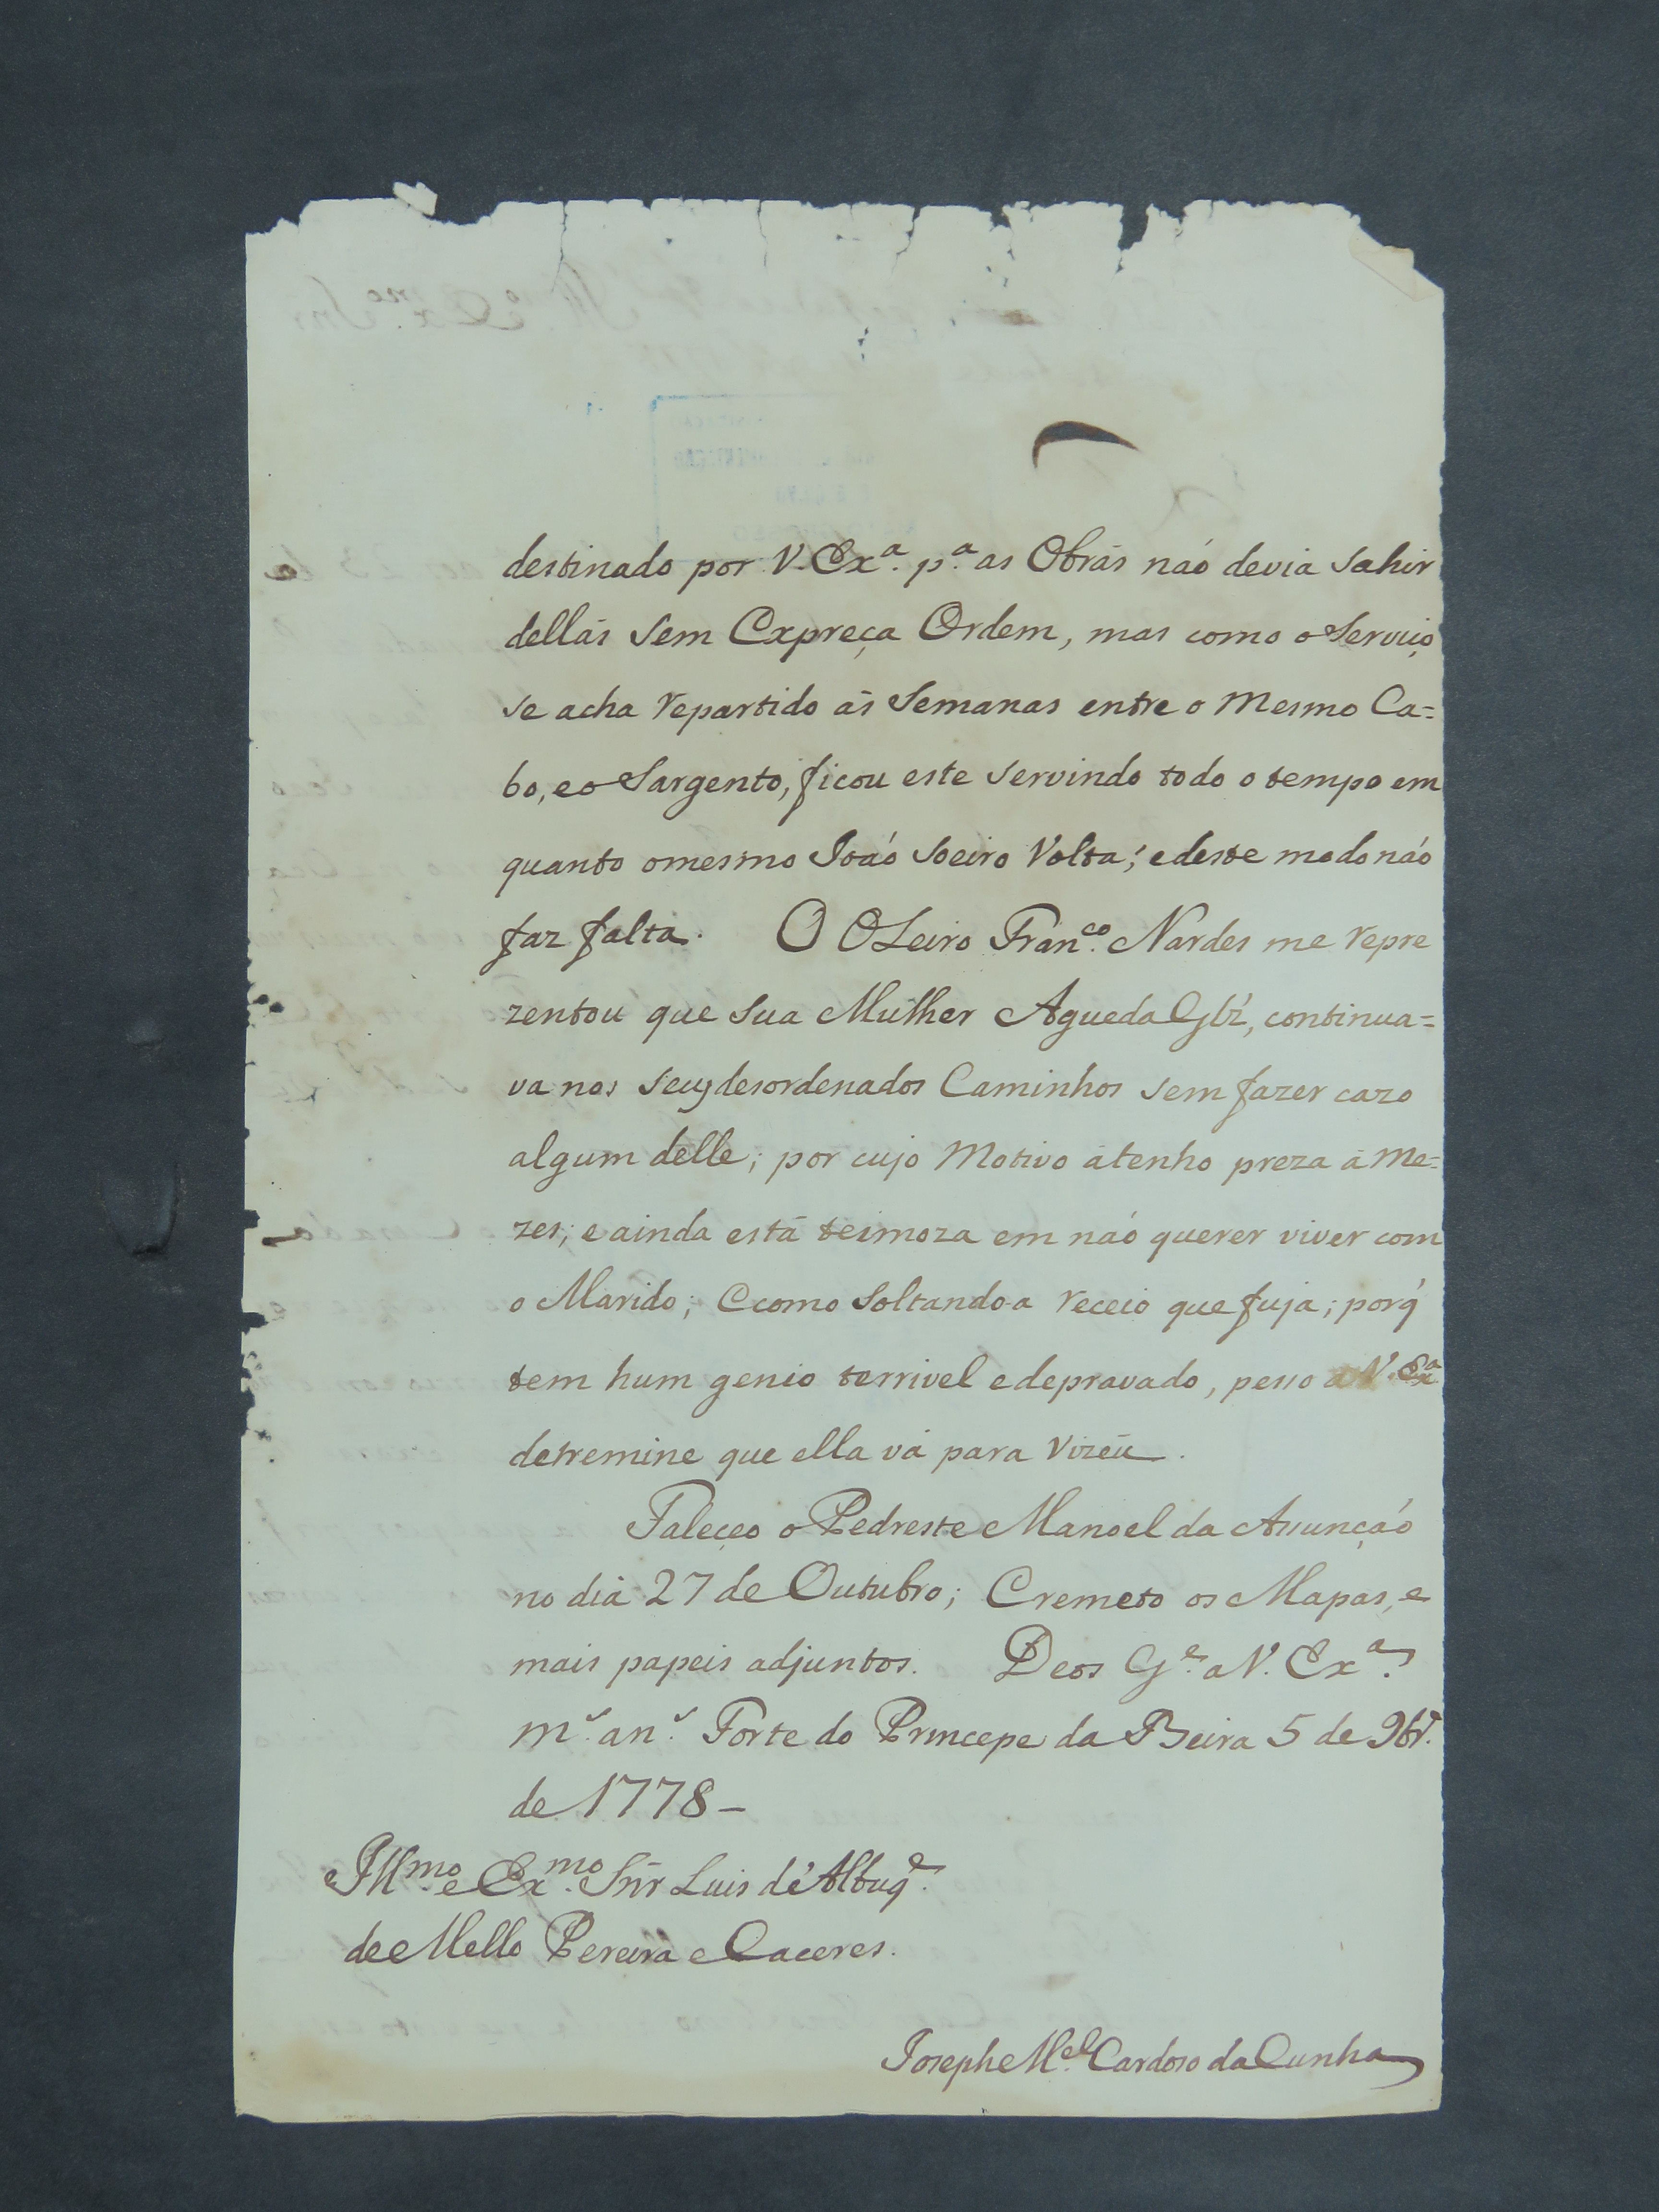 destinado por V. Exª. pª. as Obras naó devia sahir
dellas sem Expreça Ordem, mas como o Serviço
se acha repartido ás Semanas entre o Mesmo Ca=
bo, e o Sargento, ficou este servindo todo o tempo em
quanto omesmo Joaó Soeiro Volta; e deste modo naó
faz falta. O OLeiro Fran.co Nardes me repre
zentou que sua Mulher Agueda Glz', continua=
va nos seus desordenados Caminhos sem fazer cazo
algum delle; por cujo Motivo átenho preza á Me=
zes; e ainda está teimoza em naó querer viver com
o Marido; E como Soltandoa receio que fuja; porq'
tem hum genio terrivel e depravado, pesso a V. Exª
detremine que ella vá para Vizeu.
Faleçeo o Pedreste Manoel da Assunçaó
no dia 27 de Outubro; E remeto os Mapas, e
mais papeis adjuntos. Deos G.e a V. Exª.
m.s an.s Forte do Princepe da Beira 5 de 9br.
de 1778 –
Ill.mo e Ex.mo Snr Luis d'Albuq.e
de Mello Pereira e Caceres.
Joseph M.el Cardoso da Cunha